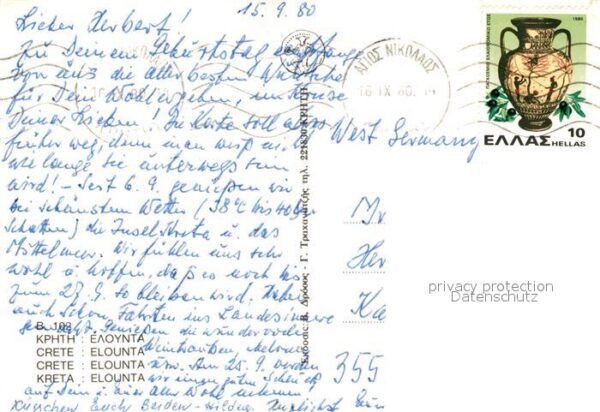 15.9.80
Lieber Herbert!
Zu Deinem Geburtstag empfange
von uns die allerbesten Wünsche
für Dein Wohlergehen, im Kreise
Deiner Lieben! Die Karte soll
früher weg, denn man weiß nicht
wie lange sie unterwegs sein
wird! - Seit 6.9. genießen wir
bei schönstem Wetter (38°C bis 40 im
Schatten) die Insel Kreta u. das
Mittelmeer. Wir fühlen uns sehr
wohl u. hoffen, daß es noch bis
zum 27.9. so bleiben wird. Haben
auch schon Fahrten ins Landesinnere
Genießen die wundervolle
Weintrauben, Melonen
usw. Am 25.9. werden
wir einen guten Schluck
auf Dein u. aller Wohl nehmen!
Küsschen Euch Beiden - Hilde
B. 102
ΚΡΗΤΗ : ΕΛΟΥΝΤΑ
CRETE : ELOUNTA
CRETE : ELOUNTA
KRETA : ELOUNTA
Έκδοσις: Β. Δρόσος - Γ. Τραχανατζής τηλ. 221830 ΚΡΗΤΗ
ΑΓΙΟΣ ΝΙΚΟΛΑΟΣ
16 IX 80
1980
ΕΛΛΑΣ 10
HELLAS
West Germany
Her
Ka
355
privacy protection
Datenschutz